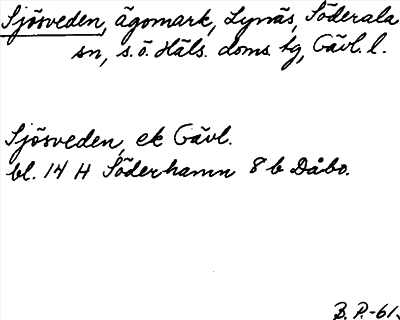 Sjösveden, ägomark, Lynäs, Söderala
sn, s.ö. Häls. doms. tg, Gävl. l.
Sjösveden, ek Gävl.
bl. 14 H Söderhamn 8 b Dåbo.
B. P. -61.